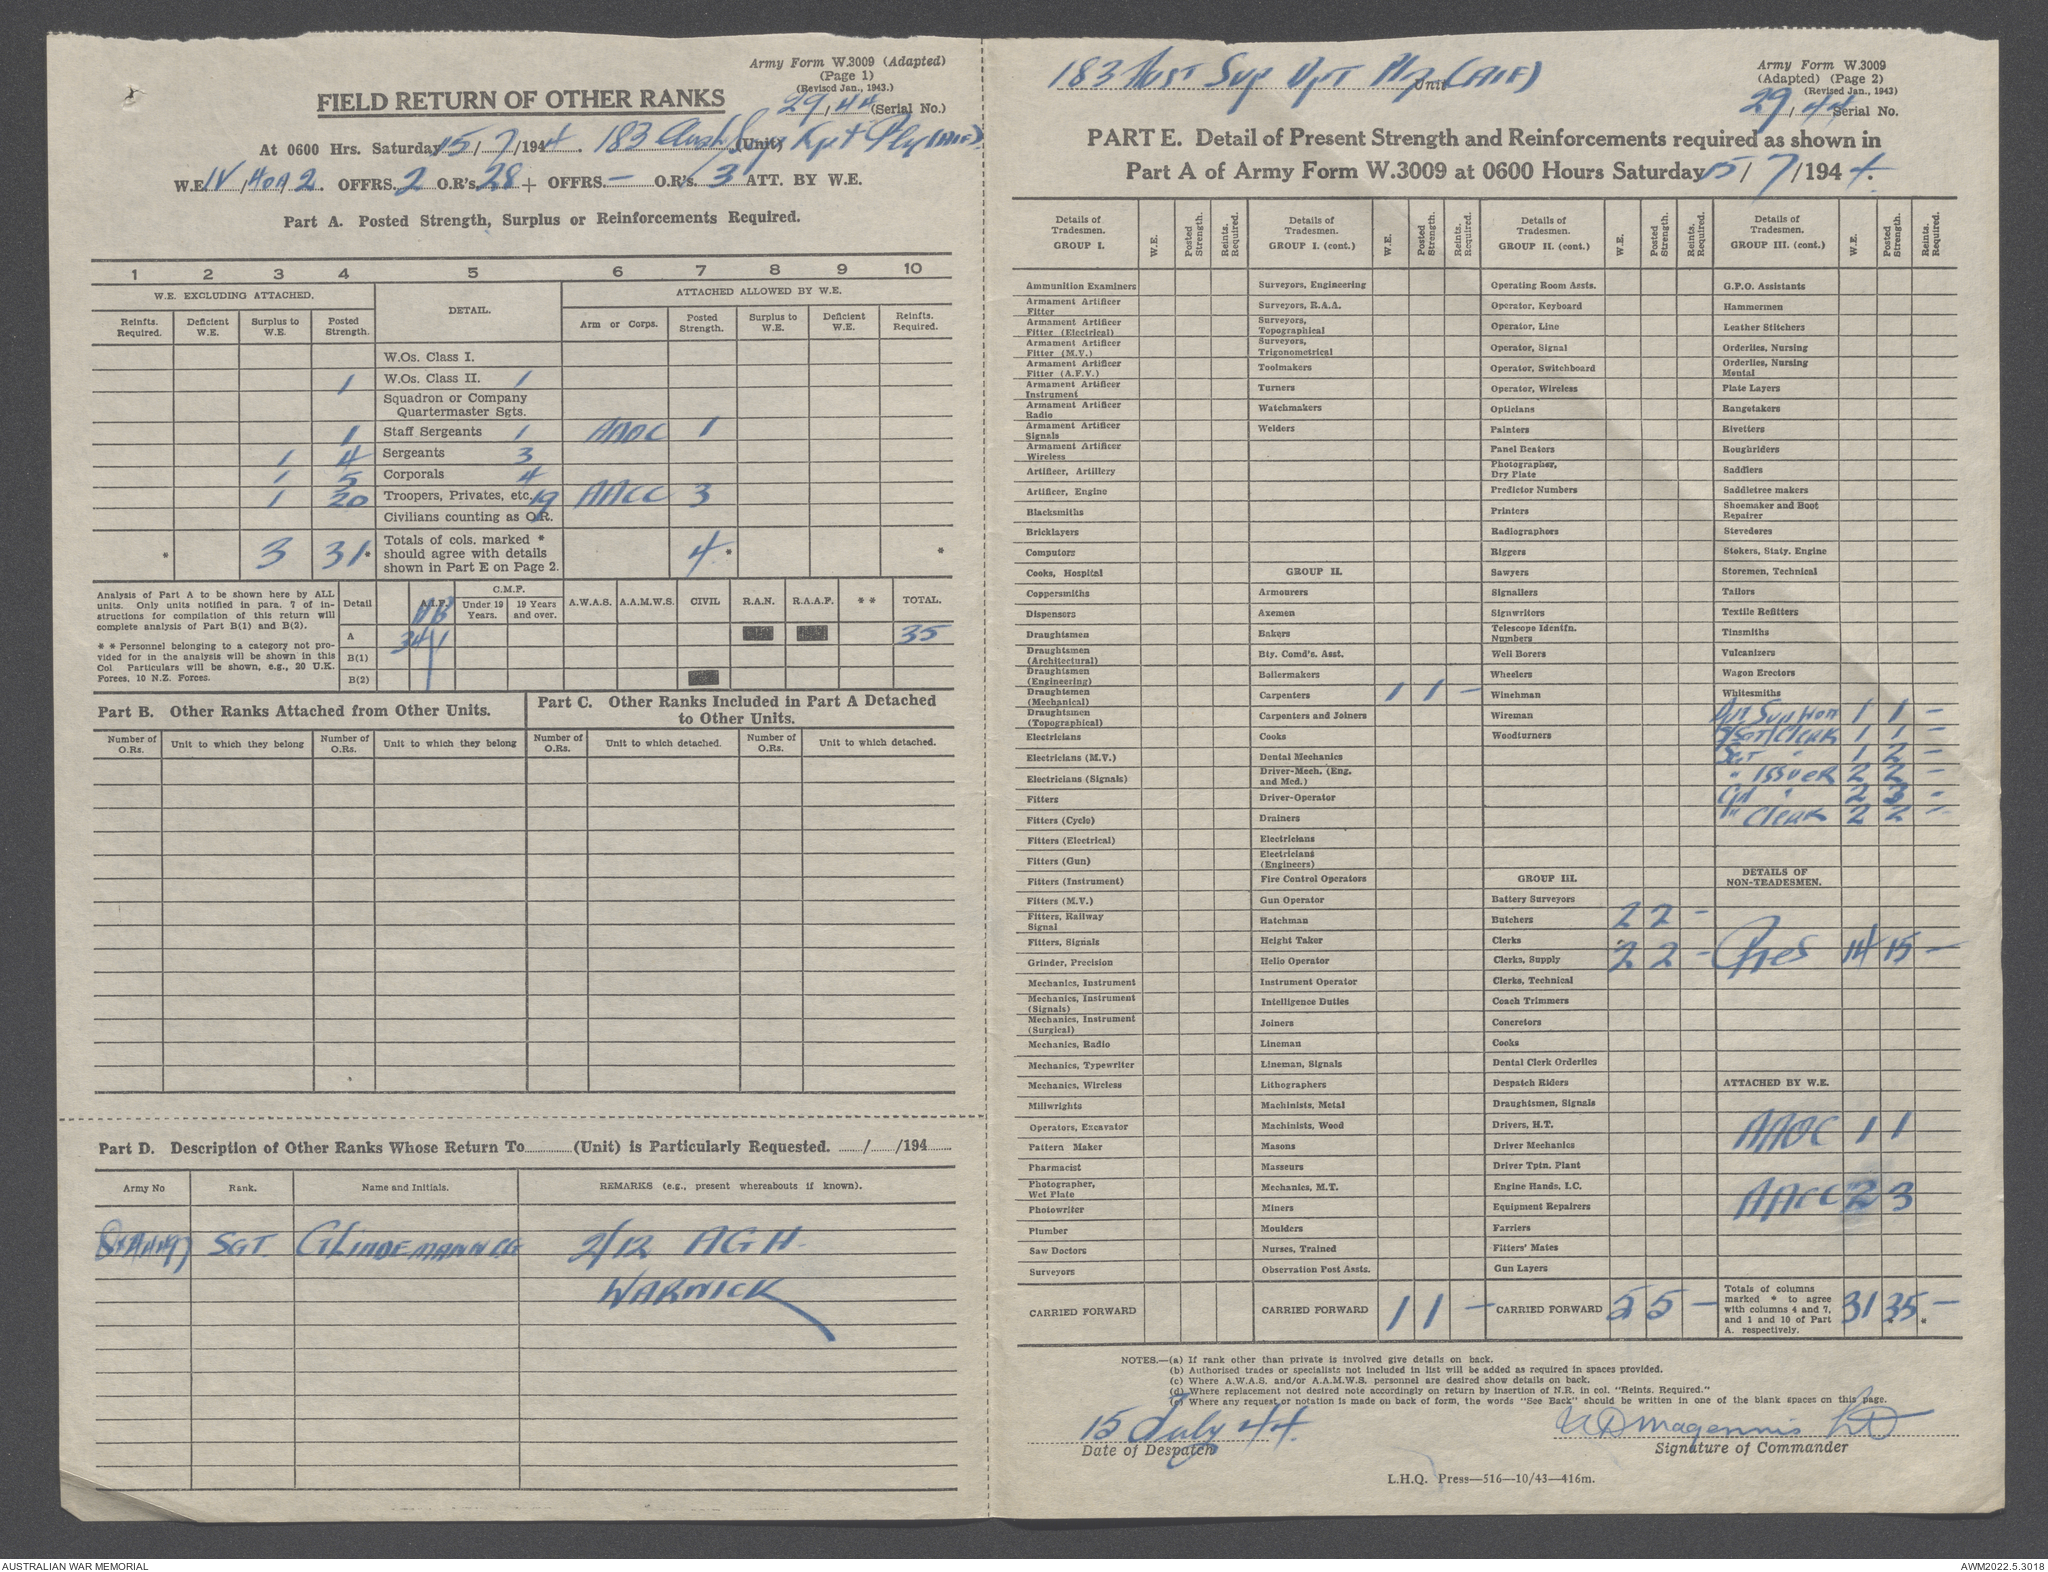 Army Form W.3009 (Adapted)
(Page 1)
(Revised Jan., 1943.)
29/44 (Serial No.)
FIELD RETURN OF OTHER RANKS
At 0600 Hrs. Saturday 15/7/1944. 183 Aust Sup Dpt Pln (AIF) (Unit)
W.E. IV/40A2. OFFRS. 2 O.R's. 28 + OFFRS. – O.R's. 3 ATT. BY W.E.
Part A. Posted Strength, Surplus or Reinforcements Required.
1 2 3 4 5 6 7 8 9 10
W.E. EXCLUDING ATTACHED. DETAIL. ATTACHED ALLOWED BY W.E.
Reinfts. Required. Deficient W.E. Surplus to W.E. Posted Strength. Arm or Corps. Posted Strength. Surplus to W.E. Deficient W.E. Reinfts. Required.
W.Os. Class I.
1 W.Os. Class II. 1
Squadron or Company Quartermaster Sgts.
1 Staff Sergeants 1 AAOC 1
1 4 Sergeants 3
1 5 Corporals 4
1 20 Troopers, Privates, etc. 19 AACC 3
Civilians counting as O.R.
* 3 31* Totals of cols. marked * should agree with details shown in Part E on Page 2. 4* *
Analysis of Part A to be shown here by ALL units. Only units notified in para. 7 of instructions for compilation of this return will complete analysis of Part B(1) and B(2).
* * Personnel belonging to a category not provided for in the analysis will be shown in this Col Particulars will be shown, e.g., 20 U.K. Forces, 10 N.Z. Forces.
Detail A.I.F. C.M.F. Under 19 Years. 19 Years and over. A.W.A.S. A.A.M.W.S. CIVIL R.A.N. R.A.A.F. * * TOTAL.
A 34 1 35
B(1)
B(2)
Part B. Other Ranks Attached from Other Units.
Part C. Other Ranks Included in Part A Detached to Other Units.
Number of O.Rs. Unit to which they belong Number of O.Rs. Unit to which they belong Number of O.Rs. Unit to which detached. Number of O.Rs. Unit to which detached.
Part D. Description of Other Ranks Whose Return To (Unit) is Particularly Requested. / /194
Army No Rank. Name and Initials. REMARKS (e.g., present whereabouts if known).
SGT. GLINDEMANN 2/12 AGH
WARWICK
183 Aust Sup Dpt Pln (AIF) Unit
Army Form W.3009
(Adapted) (Page 2)
(Revised Jan., 1943)
29/44 Serial No.
PART E. Detail of Present Strength and Reinforcements required as shown in
Part A of Army Form W.3009 at 0600 Hours Saturday 15/7/1944.
Details of Tradesmen. GROUP I. W.E. Posted Strength. Reints. Required.
Ammunition Examiners
Armament Artificer Fitter
Armament Artificer Fitter (Electrical)
Armament Artificer Fitter (M.V.)
Armament Artificer Fitter (A.F.V.)
Armament Artificer Instrument
Armament Artificer Radio
Armament Artificer Signals
Armament Artificer Wireless
Artificer, Artillery
Artificer, Engine
Blacksmiths
Bricklayers
Computors
Cooks, Hospital
Coppersmiths
Dispensers
Draughtsmen
Draughtsmen (Architectural)
Draughtsmen (Engineering)
Draughtsmen (Mechanical)
Draughtsmen (Topographical)
Electricians
Electricians (M.V.)
Electricians (Signals)
Fitters
Fitters (Cycle)
Fitters (Electrical)
Fitters (Gun)
Fitters (Instrument)
Fitters (M.V.)
Fitters, Railway Signal
Fitters, Signals
Grinder, Precision
Mechanics, Instrument
Mechanics, Instrument (Signals)
Mechanics, Instrument (Surgical)
Mechanics, Radio
Mechanics, Typewriter
Mechanics, Wireless
Millwrights
Operators, Excavator
Pattern Maker
Pharmacist
Photographer, Wet Plate
Photowriter
Plumber
Saw Doctors
Surveyors
CARRIED FORWARD
Details of Tradesmen. GROUP I. (cont.) W.E. Posted Strength. Reints. Required.
Surveyors, Engineering
Surveyors, R.A.A.
Surveyors, Topographical
Surveyors, Trigonometrical
Toolmakers
Turners
Watchmakers
Welders
GROUP II.
Armourers
Axemen
Bakers
Bty. Comd's. Asst.
Boilermakers
Carpenters 1 1 –
Carpenters and Joiners
Cooks
Dental Mechanics
Driver-Mech. (Eng. and Med.)
Driver-Operator
Drainers
Electricians
Electricians (Engineers)
Fire Control Operators
Gun Operator
Hatchman
Height Taker
Helio Operator
Instrument Operator
Intelligence Duties
Joiners
Lineman
Lineman, Signals
Lithographers
Machinists, Metal
Machinists, Wood
Masons
Masseurs
Mechanics, M.T.
Miners
Moulders
Nurses, Trained
Observation Post Assts.
CARRIED FORWARD 1 1 –
Details of Tradesmen. GROUP II. (cont.) W.E. Posted Strength. Reints. Required.
Operating Room Assts.
Operator, Keyboard
Operator, Line
Operator, Signal
Operator, Switchboard
Operator, Wireless
Opticians
Painters
Panel Beaters
Photographer, Dry Plate
Predictor Numbers
Printers
Radiographers
Riggers
Sawyers
Signallers
Signwriters
Telescope Identfn. Numbers
Well Borers
Wheelers
Winchman
Wireman
Woodturners
GROUP III.
Battery Surveyors
Butchers 2 2 –
Clerks
Clerks, Supply 2 2 –
Clerks, Technical
Coach Trimmers
Concretors
Cooks
Dental Clerk Orderlies
Despatch Riders
Draughtsmen, Signals
Drivers, H.T.
Driver Mechanics
Driver Tptn. Plant
Engine Hands, I.C.
Equipment Repairers
Farriers
Fitters' Mates
Gun Layers
CARRIED FORWARD 5 5 –
Details of Tradesmen. GROUP III. (cont.) W.E. Posted Strength. Reints. Required.
G.P.O. Assistants
Hammermen
Leather Stitchers
Orderlies, Nursing
Orderlies, Nursing Mental
Plate Layers
Rangetakers
Rivetters
Roughriders
Saddlers
Saddletree makers
Shoemaker and Boot Repairer
Stevedores
Stokers, Staty. Engine
Storemen, Technical
Tailors
Textile Refitters
Tinsmiths
Vulcanizers
Wagon Erectors
Whitesmiths
1 1 –
S/Sgt/Clerk 1 1 –
Sgt " 1 2 –
" Issuer 2 2 –
Cpl " 2 3 –
" Clerk 2 2 –
DETAILS OF NON-TRADESMEN.
Ptes 14 15 –
ATTACHED BY W.E.
AAOC 1 1
AACC 2 3
Totals of columns marked * to agree with columns 4 and 7, and 1 and 10 of Part A. respectively. 31 35 – * *
NOTES.—(a) If rank other than private is involved give details on back.
(b) Authorised trades or specialists not included in list will be added as required in spaces provided.
(c) Where A.W.A.S. and/or A.A.M.W.S. personnel are desired show details on back.
(d) Where replacement not desired note accordingly on return by insertion of N.R. in col. "Reints. Required."
(e) Where any request or notation is made on back of form, the words "See Back" should be written in one of the blank spaces on this page.
15 July 44
Date of Despatch
Magennis Lt
Signature of Commander
L.H.Q. Press—516—10/43—416m.
AUSTRALIAN WAR MEMORIAL
AWM2022.5.3018